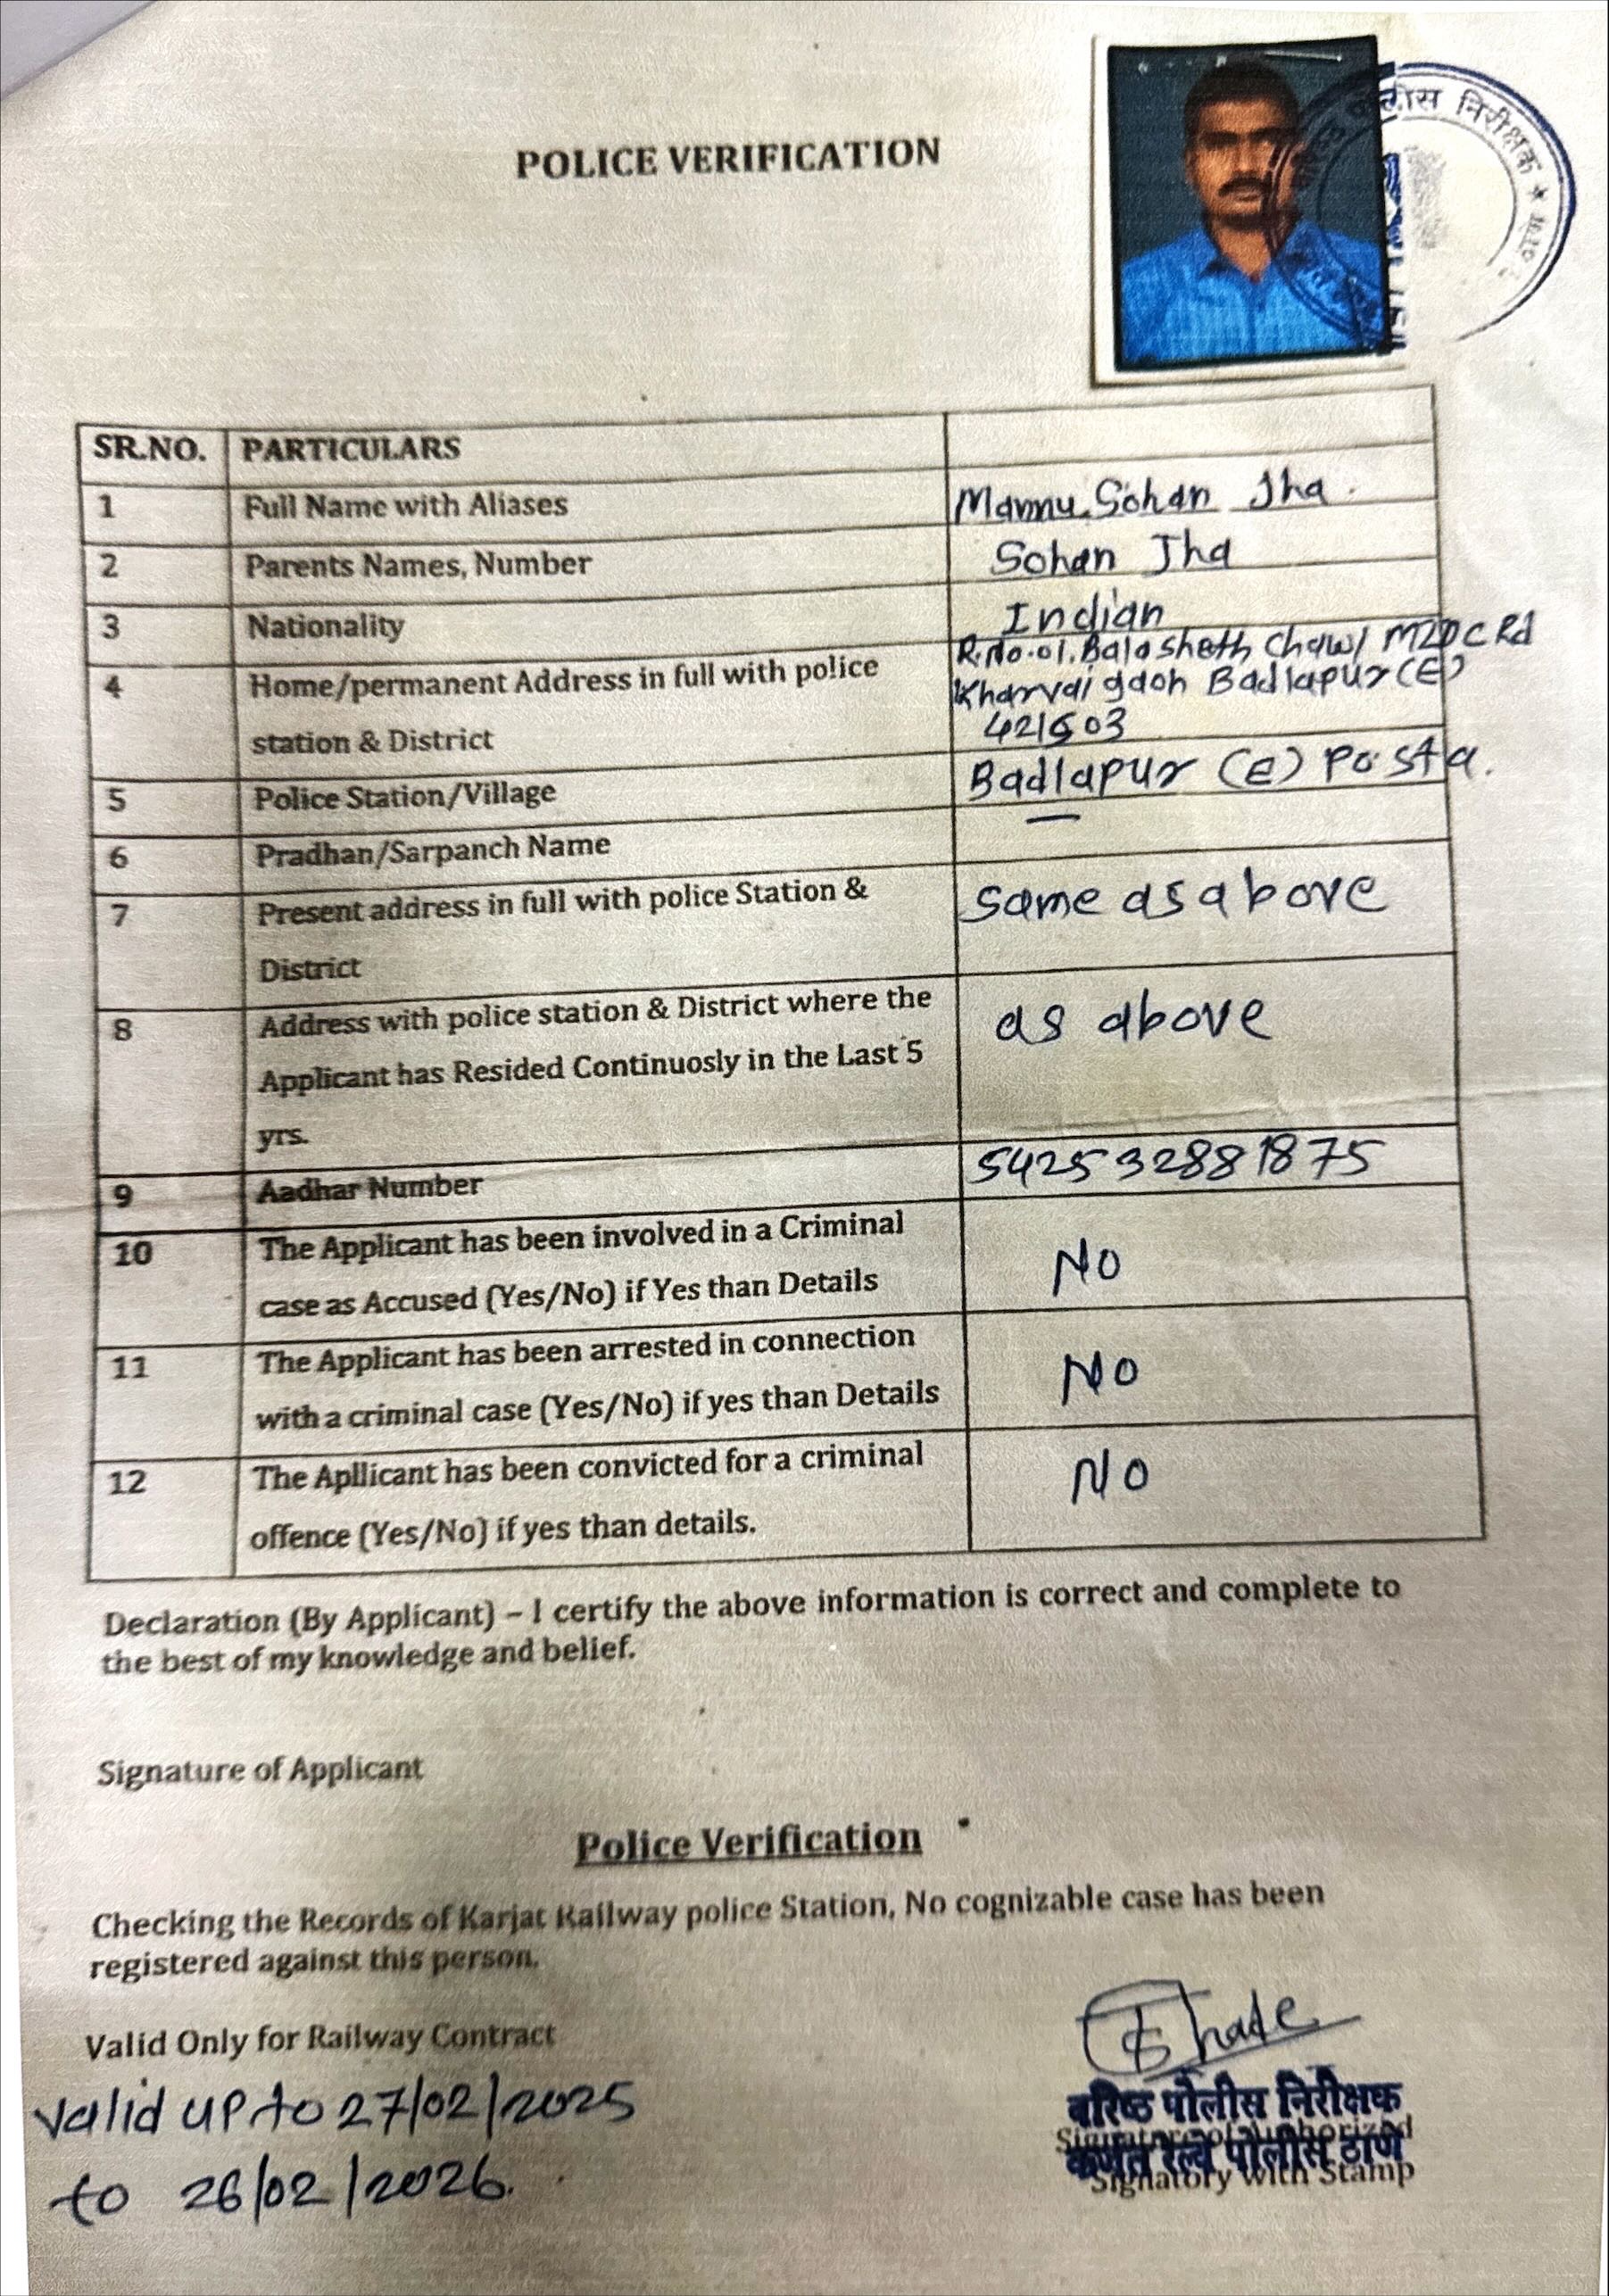 पोलीस निरीक्षक *
POLICE VERIFICATION
SR.NO. PARTICULARS
1 Full Name with Aliases Mannu. Sohan Jha.
2 Parents Names, Number Sohan Jha
3 Nationality Indian
4 Home/permanent Address in full with police
station & District
R.No.01.Balasheth Chawl MIDC Rd
Kharvai gaon Badlapur (E)
421503
5 Police Station/Village Badlapur (E) Po.sta.
6 Pradhan/Sarpanch Name —
7 Present address in full with police Station & same as above
District
8 Address with police station & District where the as above
Applicant has Resided Continuosly in the Last 5
yrs.
9 Aadhar Number 542532881875
10 The Applicant has been involved in a Criminal No
case as Accused (Yes/No) if Yes than Details
11 The Applicant has been arrested in connection No
with a criminal case (Yes/No) if yes than Details
12 The Apllicant has been convicted for a criminal No
offence (Yes/No) if yes than details.
Declaration (By Applicant) – I certify the above information is correct and complete to
the best of my knowledge and belief.
Signature of Applicant
Police Verification
Checking the Records of Karjat Railway police Station, No cognizable case has been
registered against this person.
Valid Only for Railway Contract
valid up to 27/02/2025
to 26/02/2026.
वरिष्ठ पोलीस निरीक्षक
Signature of authorized
कर्जत रेल्वे पोलीस ठाणे
Signatory with Stamp